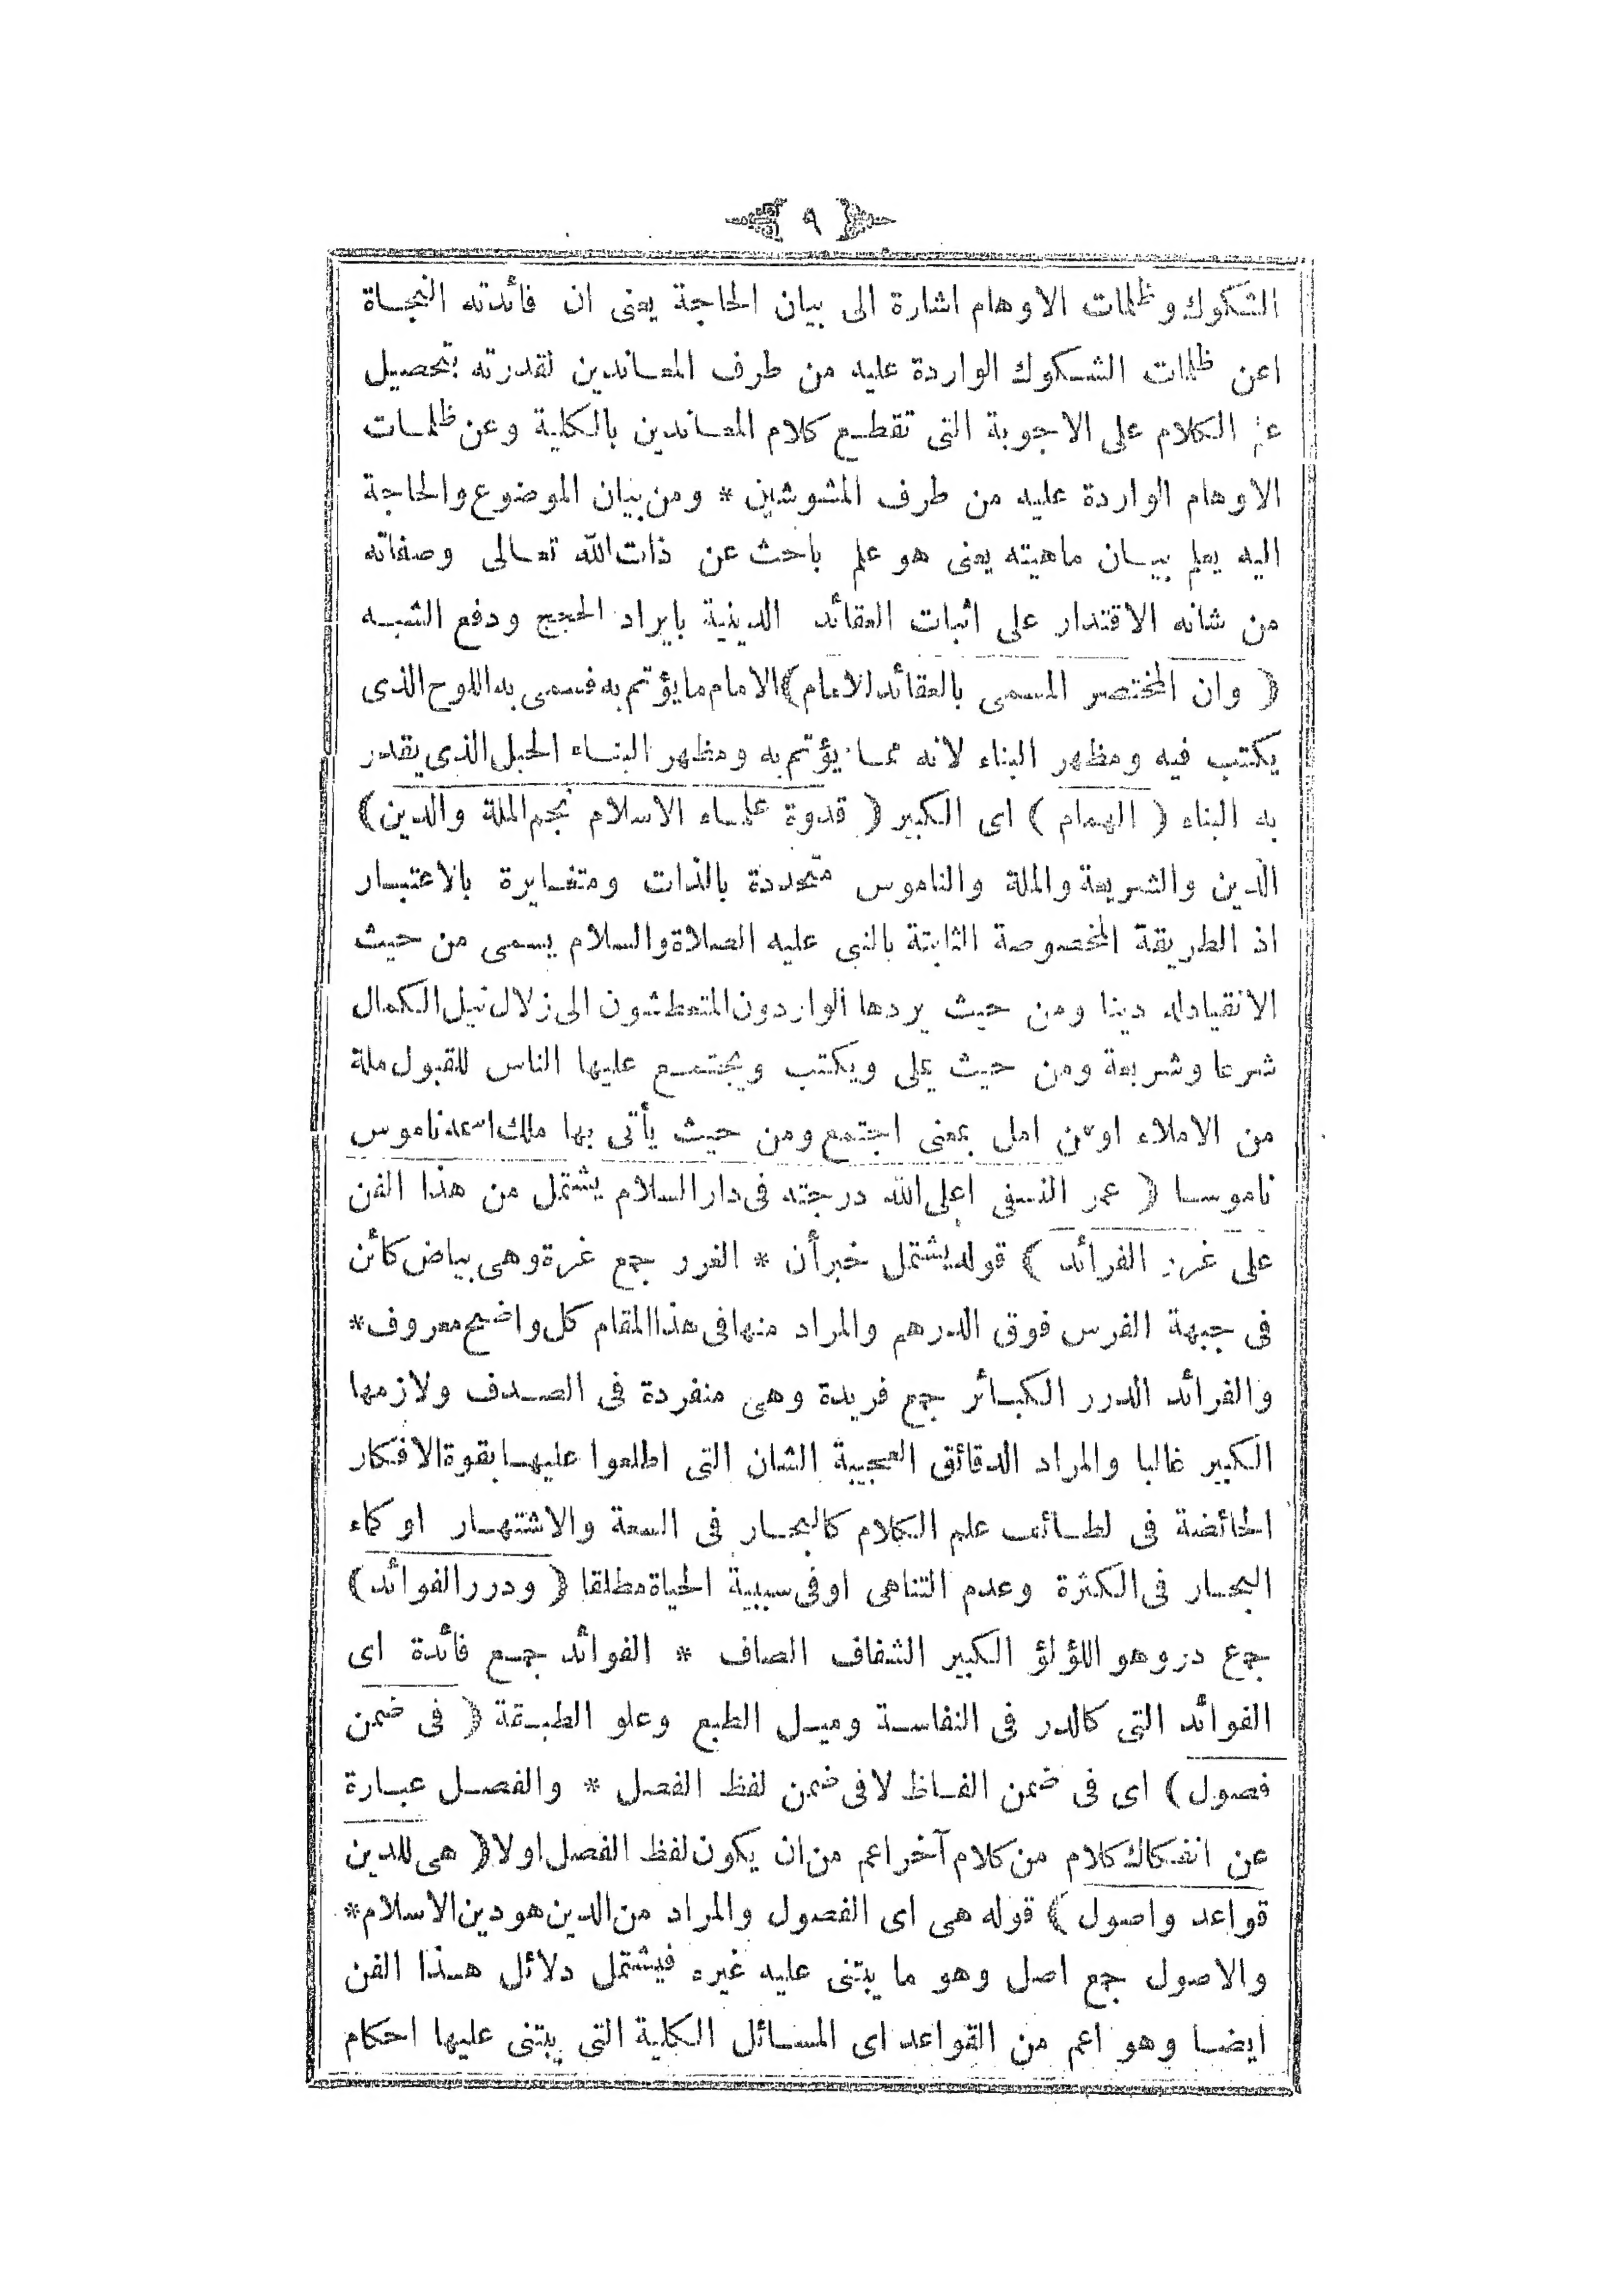 ٩
الشكوك وظلمات الاوهام اشارة الى بيان الحاجة يعنى ان فائدته النجاة
عن ظلمات الشكوك الواردة عليه من طرف المعاندين لقدرته بتحصيل
علم الكلام على الاجوبة التى تقطع كلام المعاندين بالكلية وعن ظلمات
الاوهام الواردة عليه من طرف المشوشين * ومن بيان الموضوع والحاجة
اليه يعلم بيان ماهيته يعنى هو علم باحث عن ذات الله تعالى وصفاته
من شانه الاقتدار على اثبات العقائد الدينية بايراد الحجج ودفع الشبه
( وان المختصر المسمى بالعقائد للامام ) الامام ما يؤتم به فسمى به اللوح الذى
يكتب فيه ومظهر البناء لانه مما يؤتم به ومظهر البناء الحبل الذى يقدر
به البناء ( الهمام ) اى الكبير ( قدوة علماء الاسلام نجم الملة والدين )
الدين والشريعة والملة والناموس متحددة بالذات ومتغايرة بالاعتبار
اذ الطريقة المخصوصة الثابتة بالنبى عليه الصلاة والسلام يسمى من حيث
الانقياد له دينا ومن حيث يردها الواردون المتعطشون الى زلال نيل الكمال
شرعا وشريعة ومن حيث يملى ويكتب ويجتمع عليها الناس للقبول ملة
من الاملاء او من امل بمعنى اجتمع ومن حيث يأتى بها ملك اسمه ناموس
ناموسا ( عمر النسفى اعلى الله درجته فى دار السلام يشتمل من هذا الفن
على غرر الفرائد ) قوله يشتمل خبر أن * الغرر جمع غرة وهى بياض كائن
فى جبهة الفرس فوق الدرهم والمراد منها فى هذا المقام كل واضح معروف *
والفرائد الدرر الكبائر جمع فريدة وهى منفردة فى الصدف ولازمها
الكبير غالبا والمراد الدقائق العجيبة الشان التى اطلعوا عليها بقوة الافكار
الخائضة فى لطائف علم الكلام كالبحار فى السعة والاشتهار او كماء
البحار فى الكثرة وعدم التناهى او فى سببية الحياة مطلقا ( ودرر الفوائد )
جمع در وهو اللؤلؤ الكبير الشفاف الصاف * الفوائد جمع فائدة اى
الفوائد التى كالدر فى النفاسة وميل الطبع وعلو الطبقة ( فى ضمن
فصول ) اى فى ضمن الفاظ لا فى ضمن لفظ الفصل * والفصل عبارة
عن انفكاك كلام من كلام آخر اعم من ان يكون لفظ الفصل اولا ( هى للدين
قواعد واصول ) قوله هى اى الفصول والمراد من الدين هو دين الاسلام *
والاصول جمع اصل وهو ما يبتنى عليه غيره فيشتمل دلائل هذا الفن
ايضا وهو اعم من القواعد اى المسائل الكلية التى يبتنى عليها احكام